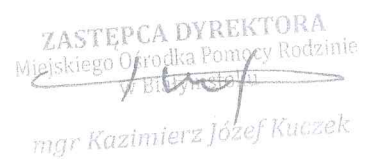 ZASTĘPCA DYREKTORA
Miejskiego Ośrodka Pomocy Rodzinie
w Białymstoku
mgr Kazimierz Józef Kuczek